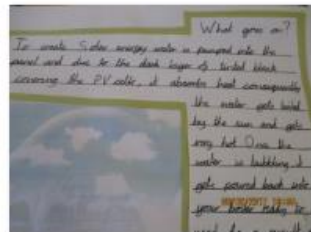 What goes on?
To create Solar energy water is pumped into the
panel and due to the dark layer of tinted black
covering the PV cells, it absorbs heat consequently
the water gets heated
by the sun and gets
very hot. Once the
water is bubbling it
gets poured back into
your boiler ready to